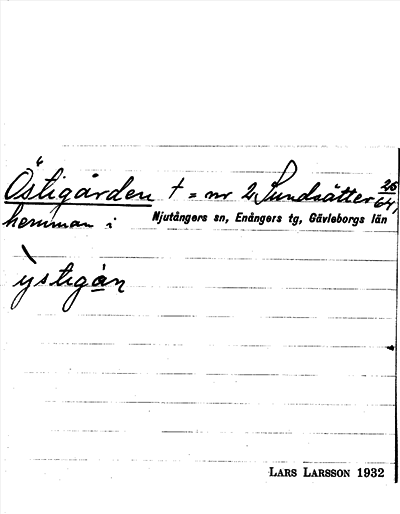 Östigården † = nr 2 Sundsätter 26/64,
hemman i Njutångers sn, Enångers tg, Gävleborgs län
ỳstigån
LARS LARSSON 1932